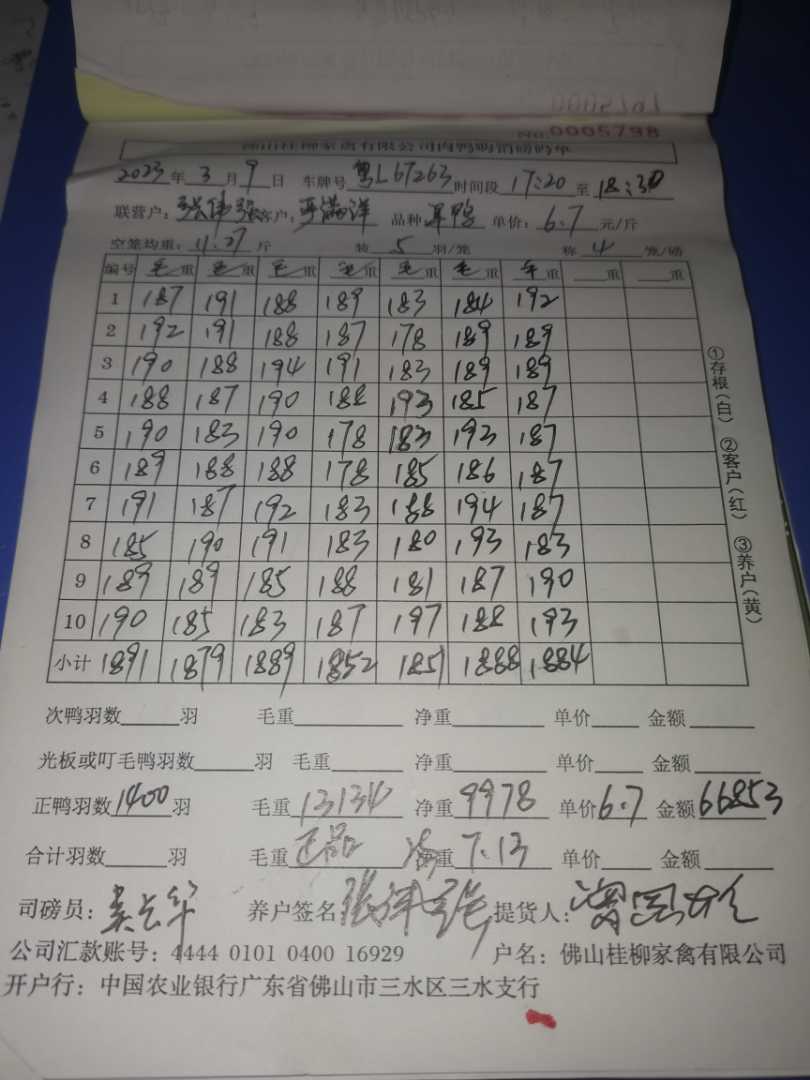 No.0005798
佛山桂柳家禽有限公司肉鸭购销磅码单
2023年3月9日 车牌号粤L67263时间段17:20至18:30
联营户: 张伟强客户: 品种 鸭 单价: 6.7元/斤
空笼均重: 11.27斤 装5羽/笼 称4笼/磅
编号 毛重 毛重 毛重 毛重 毛重 毛重 毛重 重 重
1 187 191 188 189 183 184 192
2 192 191 188 187 178 189 189
3 190 188 194 191 183 189 189
4 188 187 190 188 193 185 187
5 190 183 190 178 183 193 187
6 189 188 188 178 185 186 187
7 191 187 192 183 188 194 187
8 185 190 191 183 180 193 183
9 189 189 185 188 181 187 190
10 190 185 183 187 197 188 193
小计 1891 1879 1889 1852 1851 1888 1884
①存根(白) ②客户(红) ③养户(黄)
次鸭羽数 羽 毛重 净重 单价 金额
光板或叮毛鸭羽数 羽 毛重 净重 单价 金额
正鸭羽数1400羽 毛重13134 净重9978 单价6.7 金额66853
合计羽数 羽 毛重正品 净重7.13 单价 金额
司磅员: 养户签名张伟强 提货人:
公司汇款账号: 4444 0101 0400 16929 户名: 佛山桂柳家禽有限公司
开户行: 中国农业银行广东省佛山市三水区三水支行